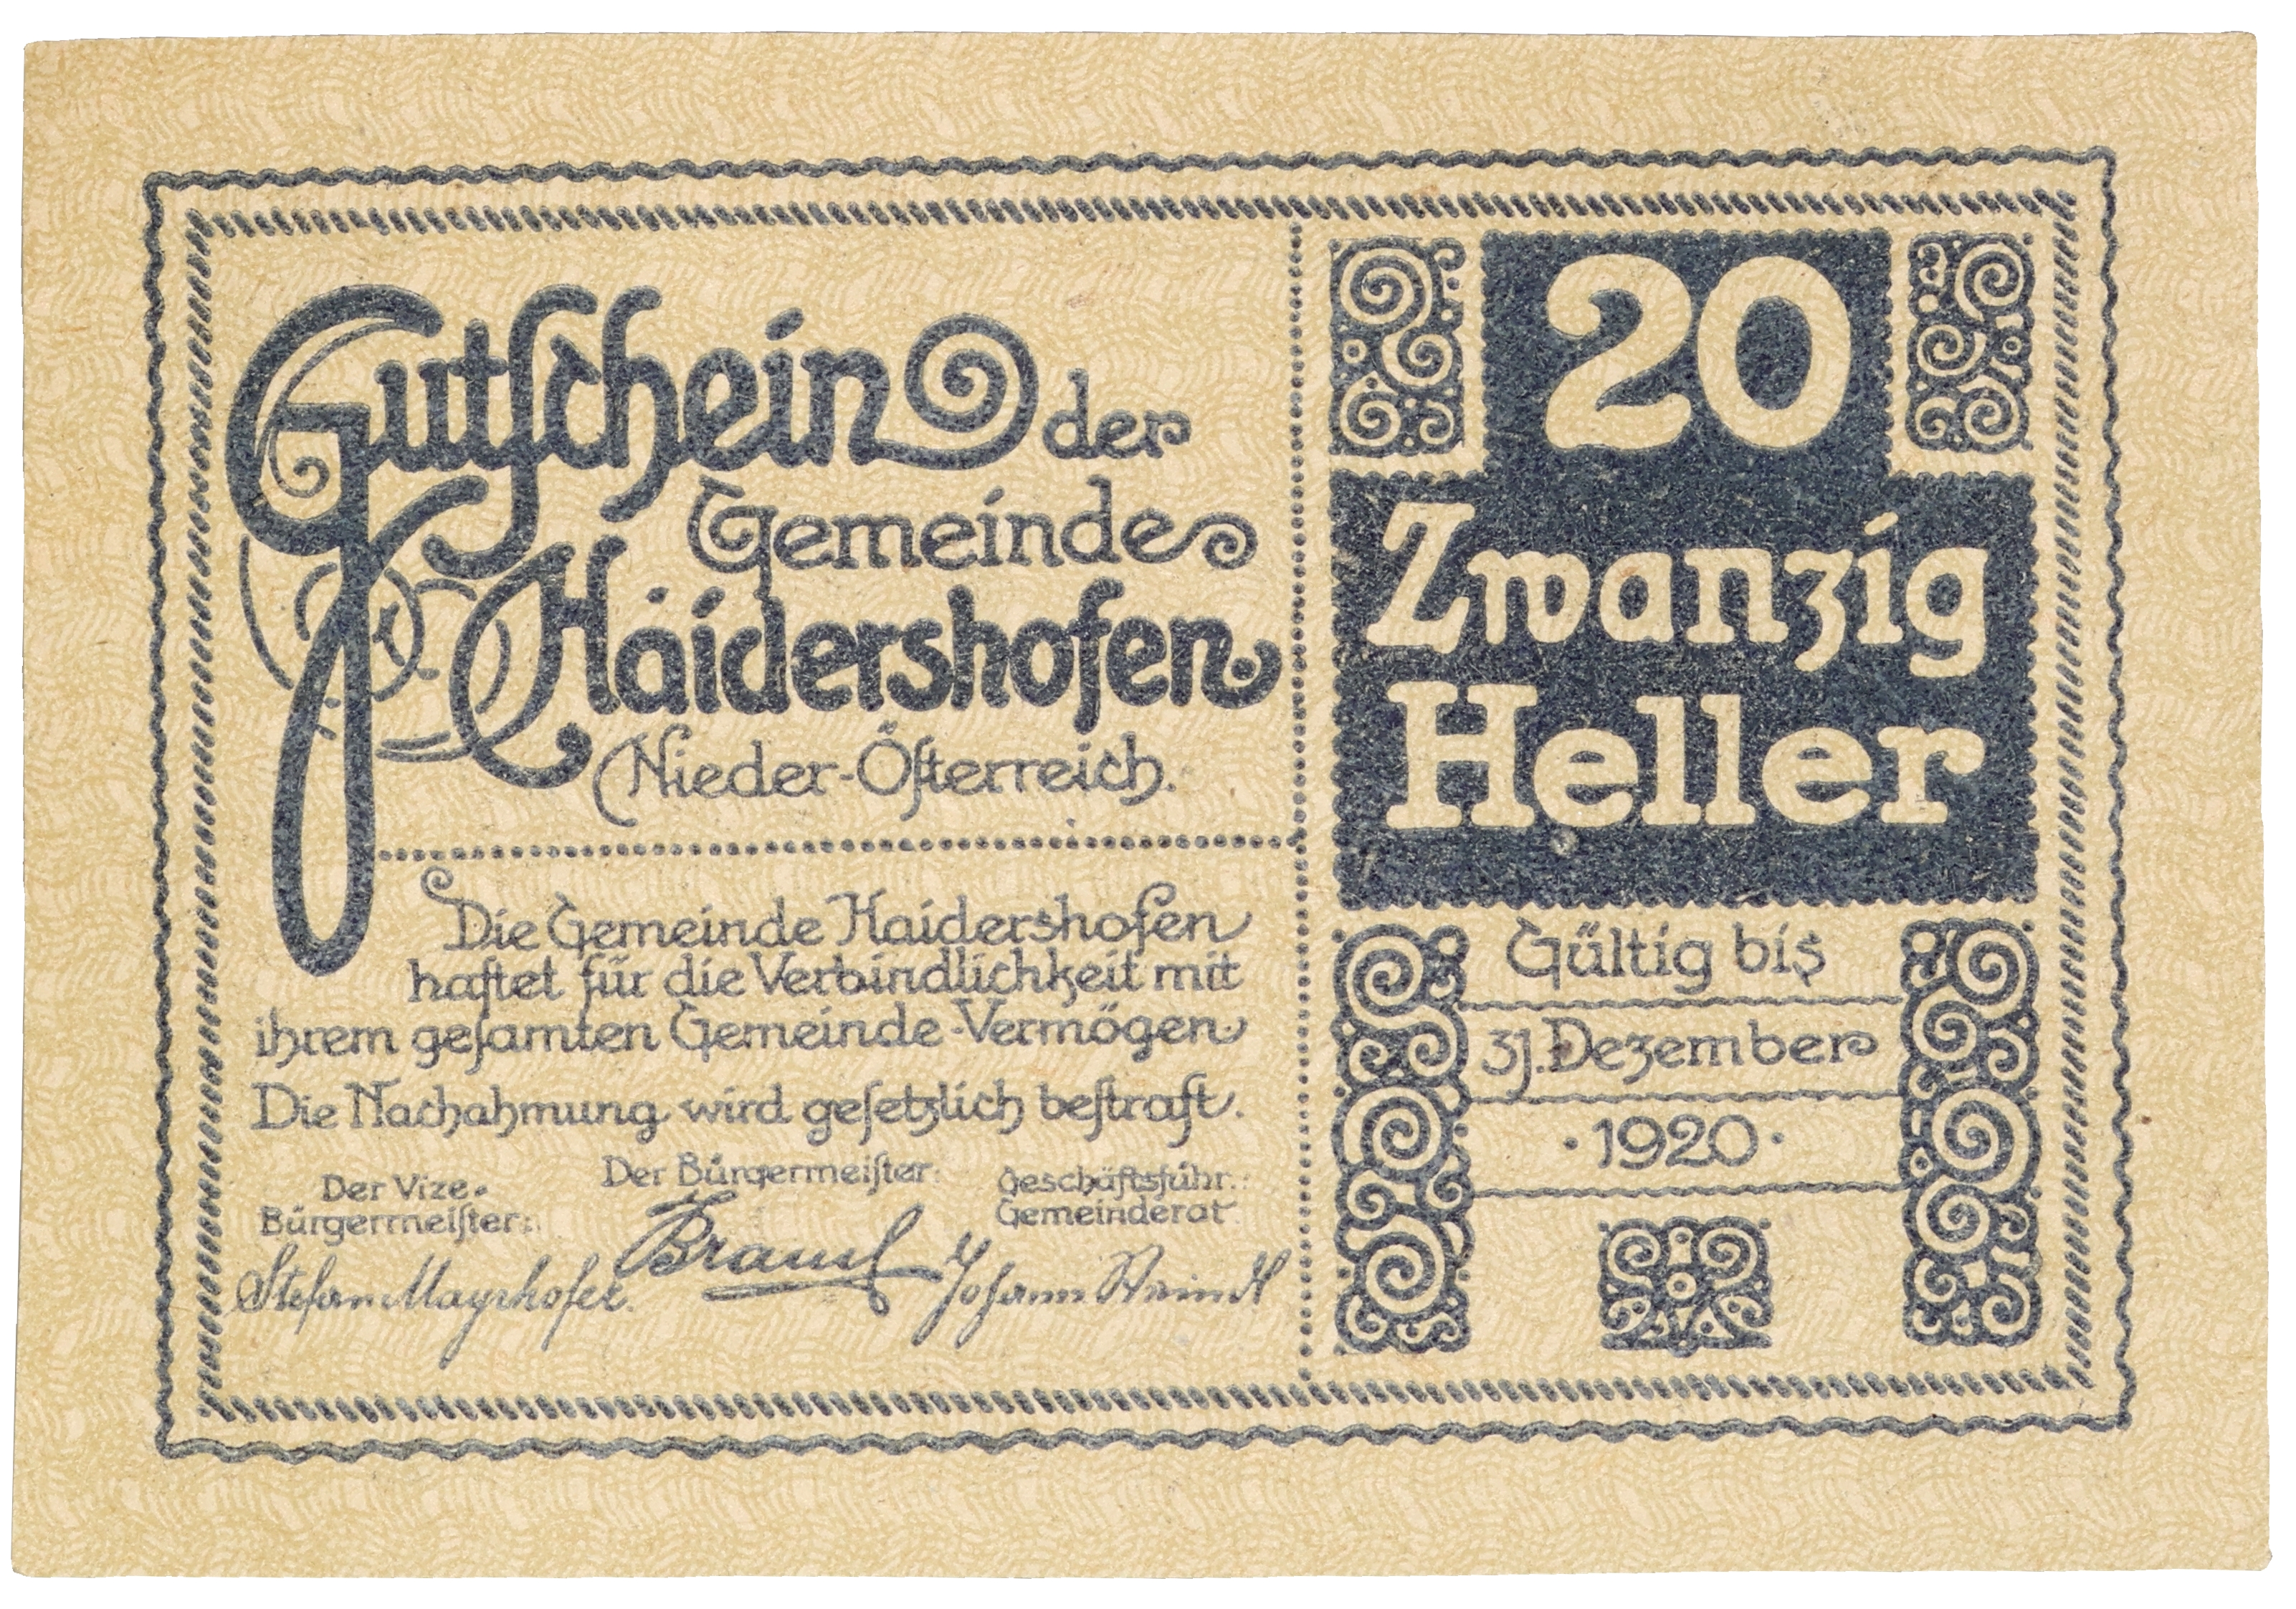 Gutſchein der
Gemeinde
Haidershofen
Nieder-Öſterreich.
Die Gemeinde Haidershofen
haftet für die Verbindlichkeit mit
ihrem geſamten Gemeinde-Vermögen
Die Nachahmung wird geſetzlich beſtraft.
Der Vize-
Bürgermeiſter:
Stefan Mayrhofer.
Der Bürgermeiſter:
Geſchäftsführ.:
Gemeinderat
Johann
20
Zwanzig
Heller
Gültig bis
31. Dezember
·1920·